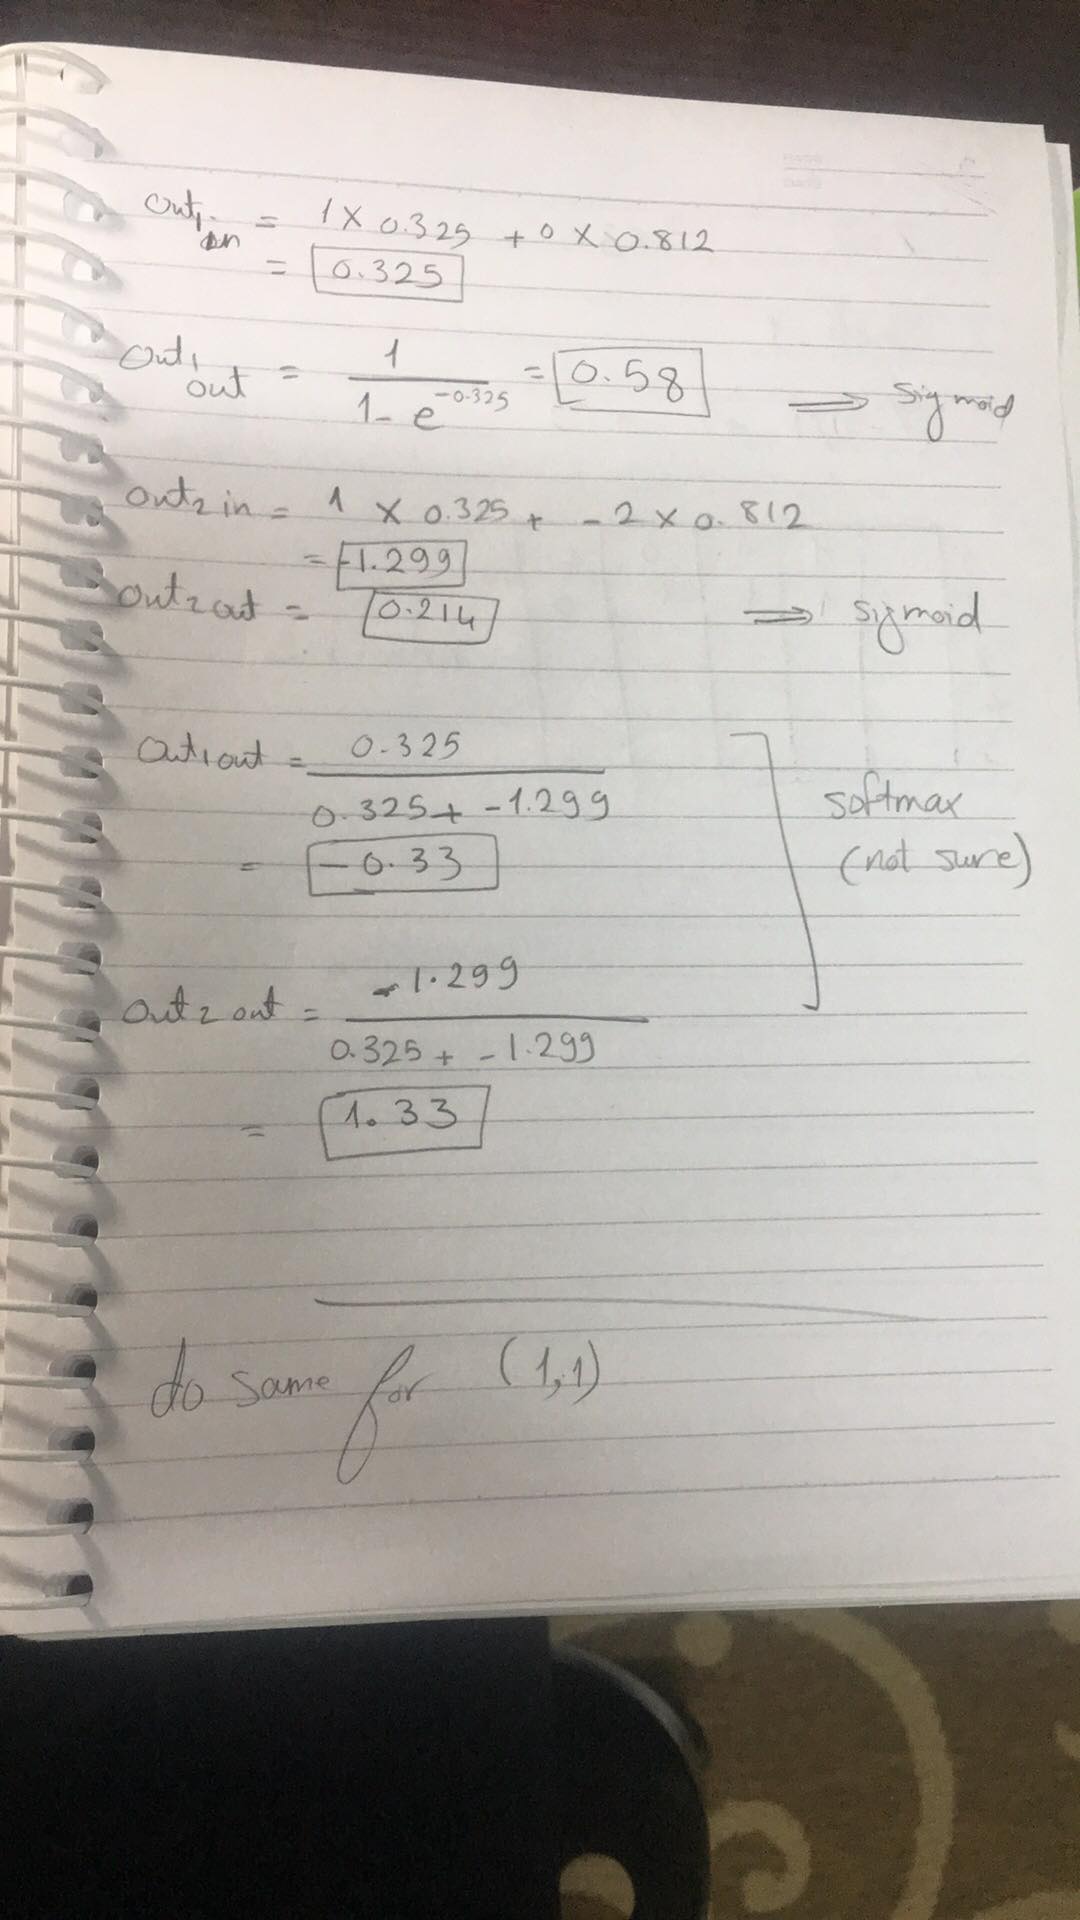 out1 in = 1 X 0.325 + 0 X 0.812
= 0.325
out1 out = 1 / 1 - e^-0.325 = 0.58 ⟹ sigmoid
out2 in = 1 X 0.325 + -2 x 0.812
= -1.299
out2 out = 0.214 ⟹ sigmoid
out1 out = 0.325
0.325 + -1.299
= -0.33
softmax
(not sure)
out2 out = -1.299
0.325 + -1.299
= 1.33
do same for (1,1)